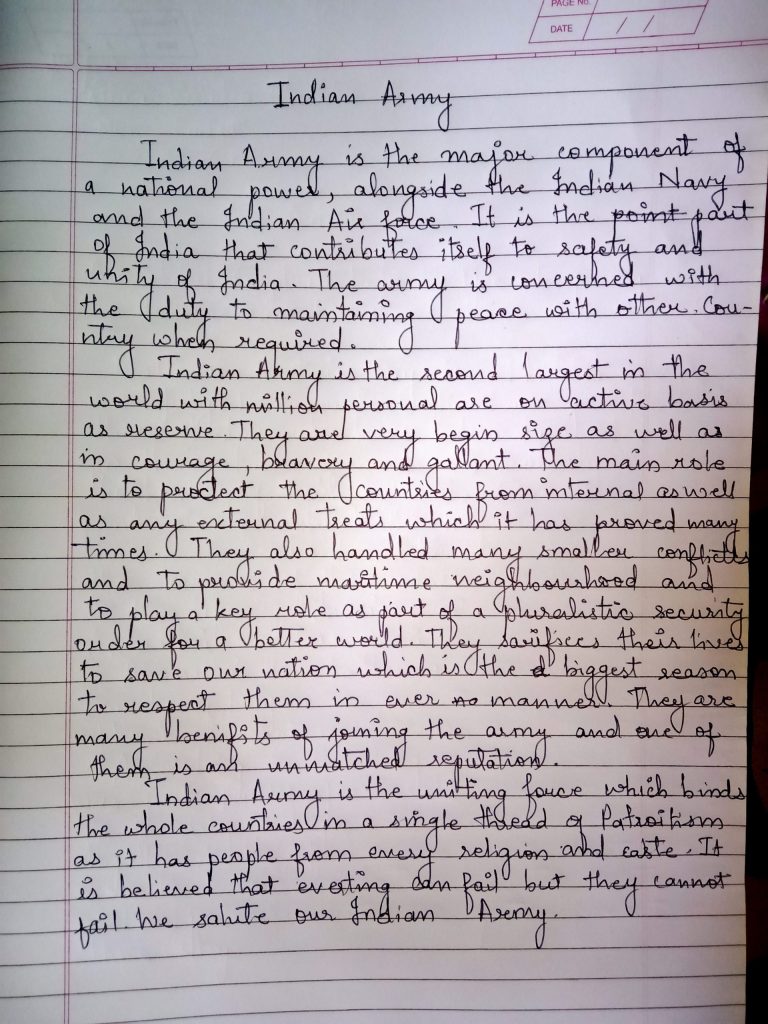 PAGE No.
DATE / /
Indian Army
Indian Army is the major component of
a national power, alongside the Indian Navy
and the Indian Air force. It is the point part
of India that contributes itself to safety and
unity of India. The army is concerned with
the duty to maintaining peace with other. Cou-
ntry when required.
Indian Army is the second largest in the
world with million personal are on active basis
as reserve. They are very begin size as well as
in courage, bravery and gallant. The main role
is to protect the countries from internal as well
as any external treats which it has proved many
times. They also handled many smaller conflicts
and to provide maritime neighbourhood and
to play a key role as part of a pluralistic security
order for a better world. They sarifices their lives
to save our nation which is the biggest reason
to respect them in ever no manner. They are
many benifits of joining the army and one of
them is an unmatched reputation.
Indian Army is the uniting force which binds
the whole countries in a single thread of Patroitism
as it has people from every religion and caste. It
is believed that eveting can fail but they cannot
fail. We salute our Indian Army.